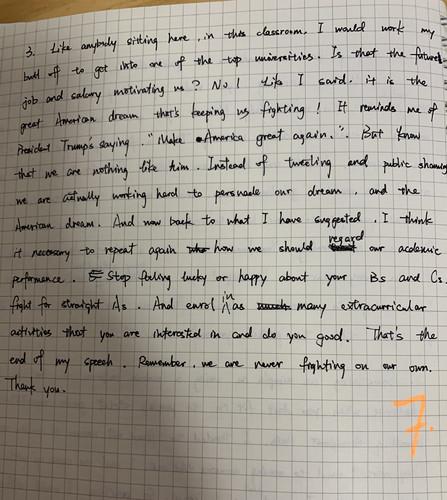 3. Like anybody sitting here, in this classroom, I would work my
butt off to get into one of the top universities. Is that the future
job and salary motivating us? No! Like I said. it is the
great American dream that's keeping us fighting! It reminds me of
President Trump's saying, "Make America great again.". But know
that we are nothing like him. Instead of tweeting and public shaming
we are actually working hard to persuade our dream, and the
American dream. And now back to what I have suggested, I think
it necessary to repeat again how we should regard our academic
performance. Stop feeling lucky or happy about your Bs and Cs.
fight for straight As. And enrol in as many extracurricular
activities that you are interested in and do you good. That's the
end of my speech. Remember, we are never fighting on our own.
Thank you.
7.